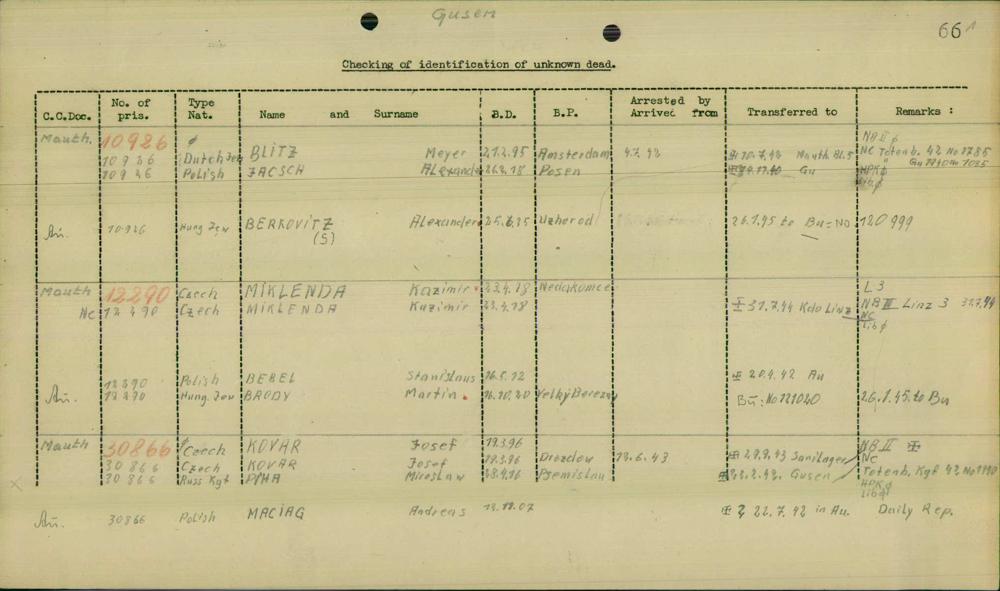 Gusen
66
Checking of identification of unknown dead.
C.C.Doc. No. of pris. Type Nat. Name and Surname B.D. B.P. Arrested by Arrived from Transferred to Remarks :
Mauth. 10926 NB II
10926 Dutch Jew BLITZ Meyer 21.2.95 Amsterdam 4.7.42 10.7.42 Mauth Bl. 5 NC Totenb. 42 No 1785
10926 Polish JACSCH Alexander Posen Gu HPK
Au. 10926 Hung Jew BERKOVITZ (S) Alexander 25.6.25 Uzhorod 26.1.45 to Bu-No 120999
Mauth 12290 Czech MIKLENDA Kazimir 23.4.18 Nedakonice L 3
NC 12290 Czech MIKLENDA Kazimir 23.4.18 31.7.44 Kdo Linz NB III Linz 3 31.7.44
NC
Lib
12290 Polish BEBEL Stanislaus 16.5.12 20.4.42 Au
Au. 12290 Hung. Jew BRODY Martin 16.10.20 Velky Berezny Bu: No 121020 26.1.45 to Bu
Mauth 30866 Czech KOVAR Josef 19.3.96 NB II
30866 Czech KOVAR Josef 19.3.96 Drozdow 13.6.43 29.9.43 Sanilager NC
30866 Russ Kgf Miroslaw Pzemislau Gusen Totenb. Kgf 42 No 1190
HPK
Lib
Au. 30866 Polish MACIAG Andreas 13.11.07 22.7.42 in Au. Daily Rep.